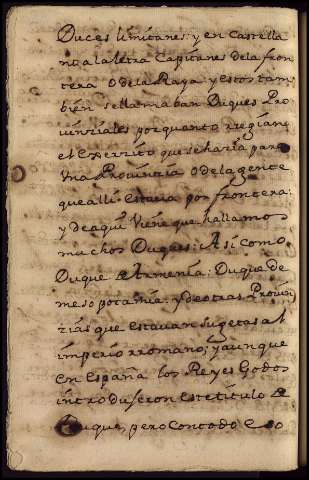 Duces limitanes: y en Castella
no a la letra Capitanes de la fron
tera o de la Raya: y estos tam
bien se llamaban Duques Pro
uinziales por quanto rregian
el Exerzito que se hazia para
Vna Prouinzia o de la gente
que alli estaua por frontera:
y de aqui Viene que hallamos
muchos Duques: Asi como
Duque de Armenia: Duque de
mesopotamia: y de otras Prouin
zias que estauan sugetas al
imperio rromano; y aunque
en España los Reyes Godos
introduseron este titulo de
Duque, pero con todo eso